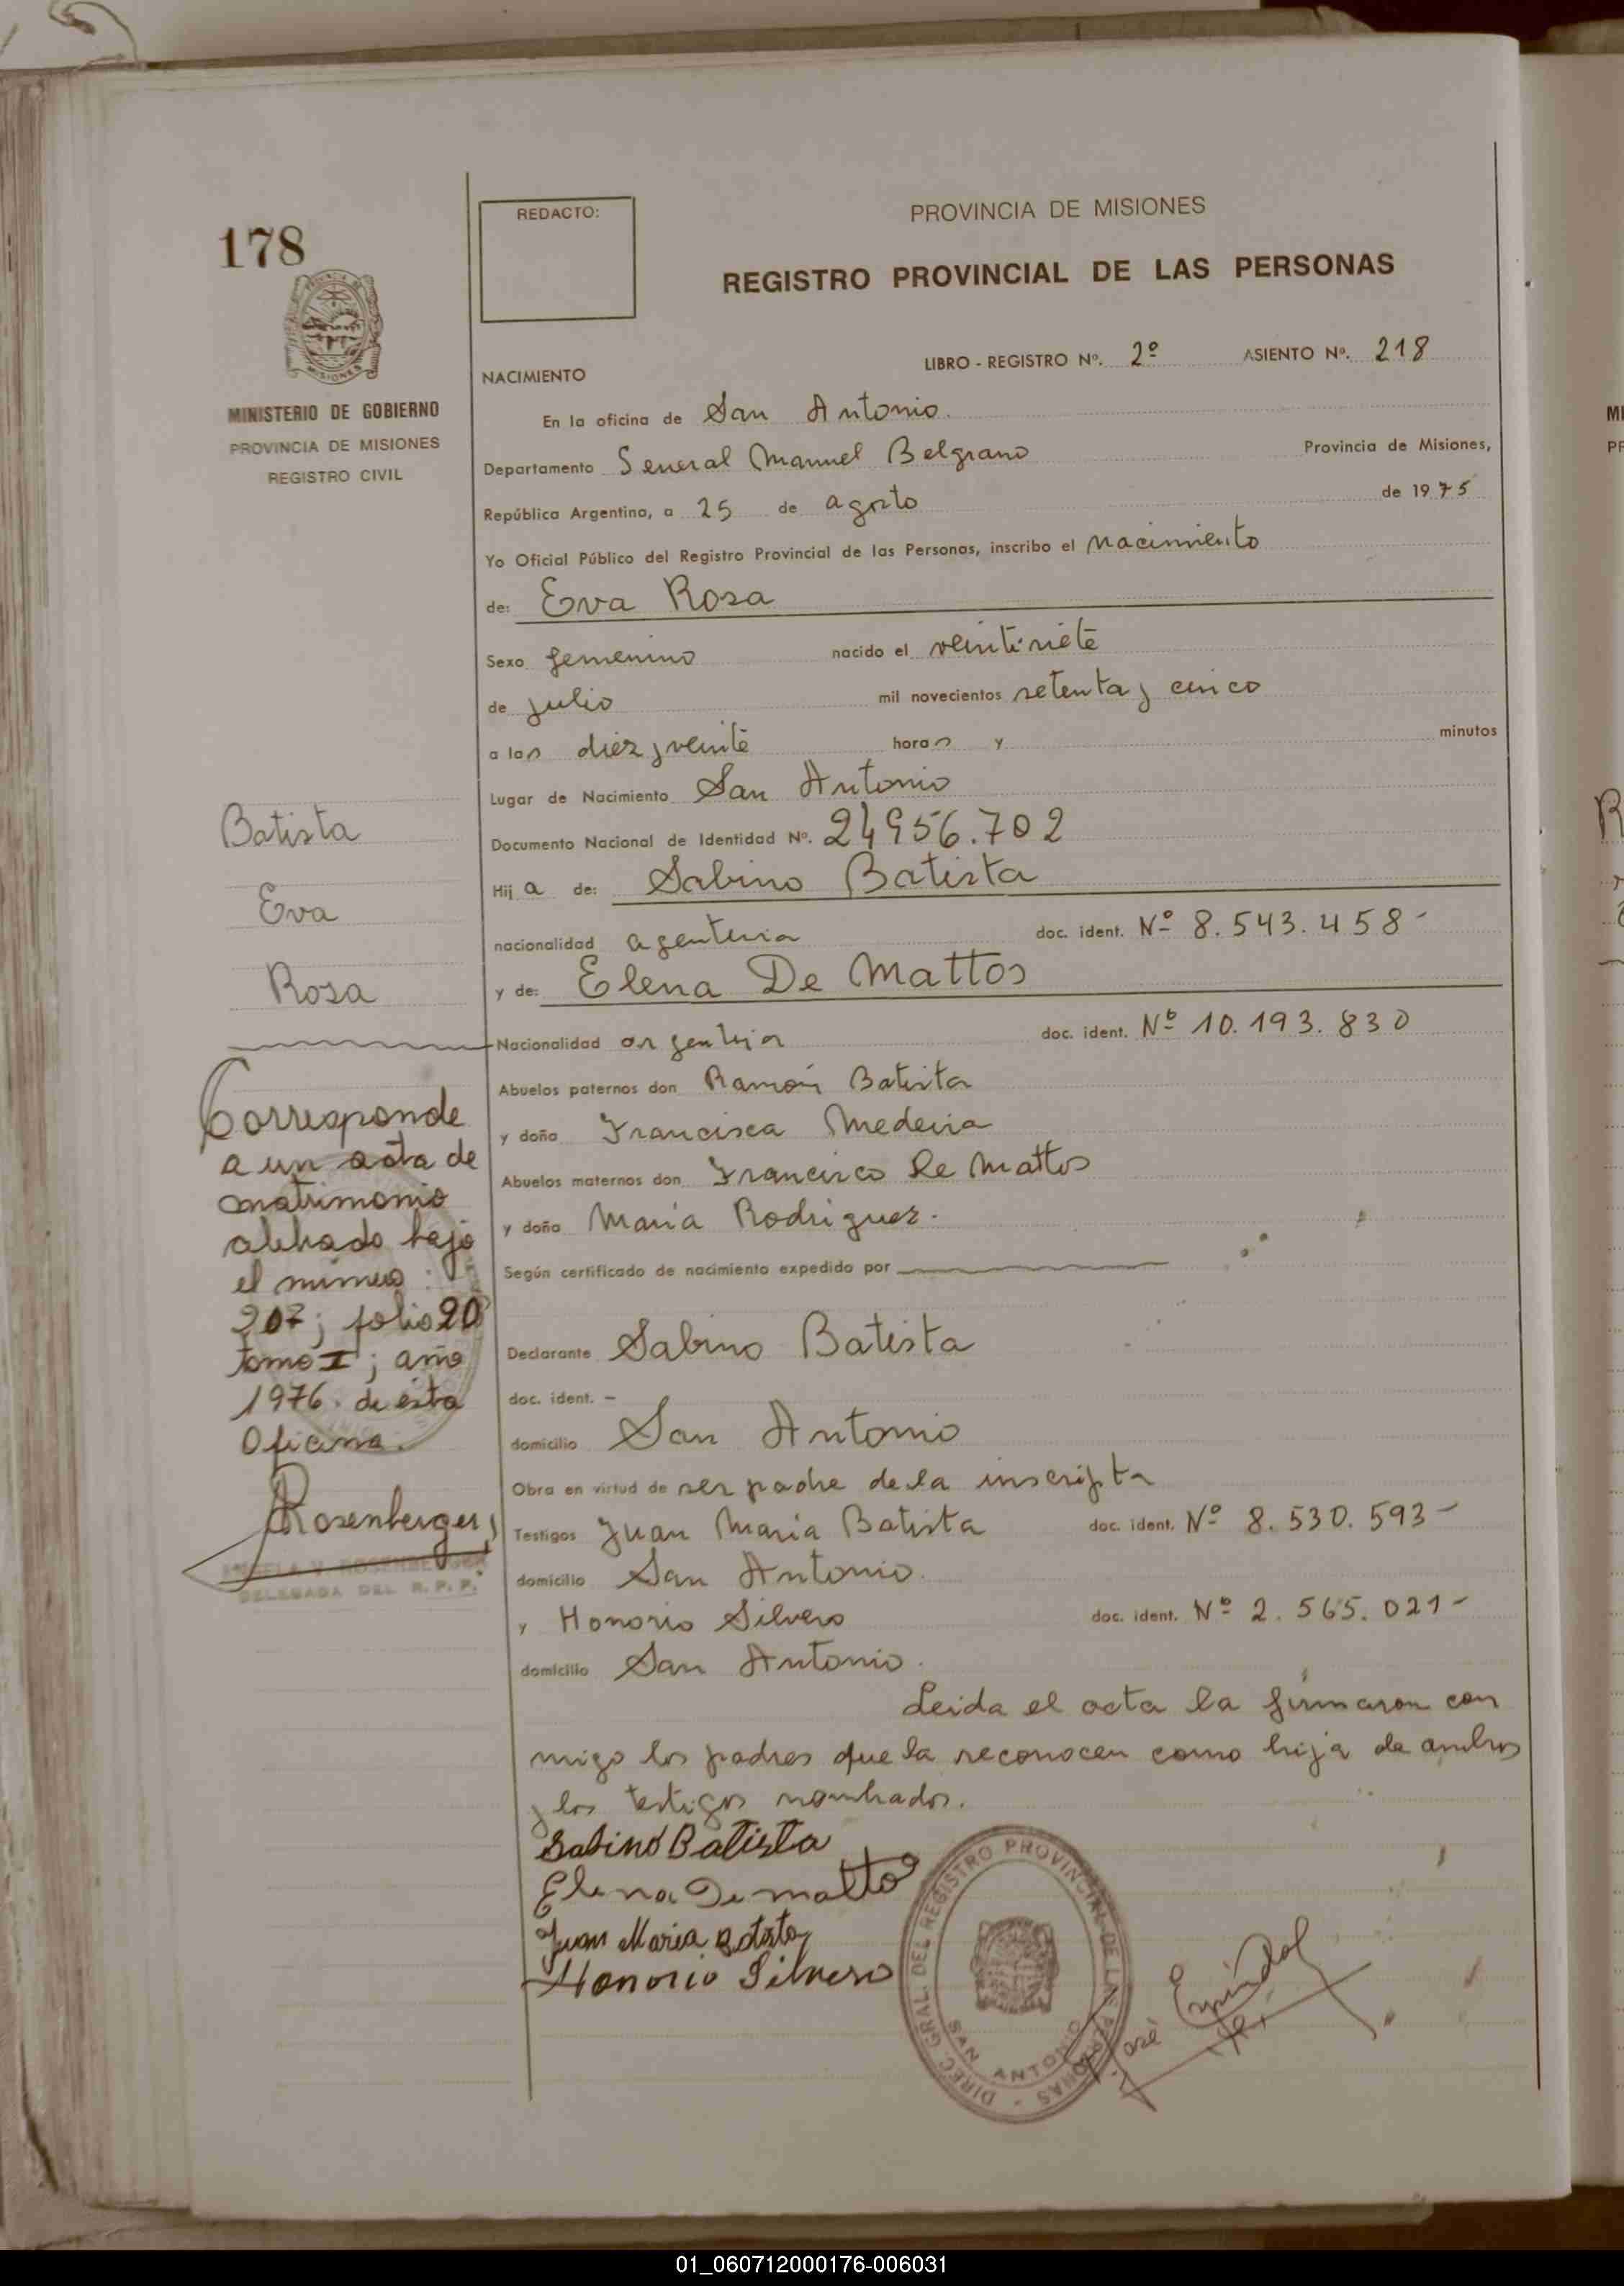 178
MISIONES
MINISTERIO DE GOBIERNO
PROVINCIA DE MISIONES
REGISTRO CIVIL
REDACTO:
PROVINCIA DE MISIONES
REGISTRO PROVINCIAL DE LAS PERSONAS
LIBRO - REGISTRO Nº. 2º ASIENTO Nº. 218
NACIMIENTO
En la oficina de San Antonio.
Departamento General Manuel Belgrano Provincia de Misiones,
República Argentina, a 25 de agosto de 1975
Yo Oficial Público del Registro Provincial de las Personas, inscribo el nacimiento
de: Eva Rosa
Sexo femenino nacido el veintisiete
de julio mil novecientos setenta y cinco
a las diez y veinte horas y minutos
Lugar de Nacimiento San Antonio
Documento Nacional de Identidad Nº. 24956.702
Hij a de: Sabino Batista
nacionalidad agentina doc. ident. Nº 8.543.458-
y de: Elena De Mattos
Nacionalidad argentina doc. ident. Nº 10.193.830
Abuelos paternos don Ramón Batista
y doña Francisca Medeira
Abuelos maternos don Francisco De Mattos
y doña Maria Rodriguez.
Según certificado de nacimiento expedido por
Declarante Sabino Batista
doc. ident. -
domicilio San Antonio
Obra en virtud de ser padre de la inscripta
Testigos Juan Maria Batista doc. ident. Nº 8.530.593-
domicilio San Antonio.
y Honorio Silvero doc. ident. Nº 2.565.021-
domicilio San Antonio.
Leida el acta la firmaron con
migo los padres que la reconocen como hija de ambos
y los testigos nombrados.
Sabino Batista
Elena De matto
Juan Maria Batista
Honorio Silvero
DIREC. GRAL. DEL REGISTRO PROVINCIAL DE LAS PERSONAS -
SAN ANTONIO
José
Batista
Eva
Rosa
Corresponde
a un acta de
matrimonio
labrado bajo
el número:
207; folio 20
tomo I; año
1976. de esta
Oficina.
Rosenberger
ROSENBERGER
DELEGADA DEL R. P. P.
01_060712000176-006031